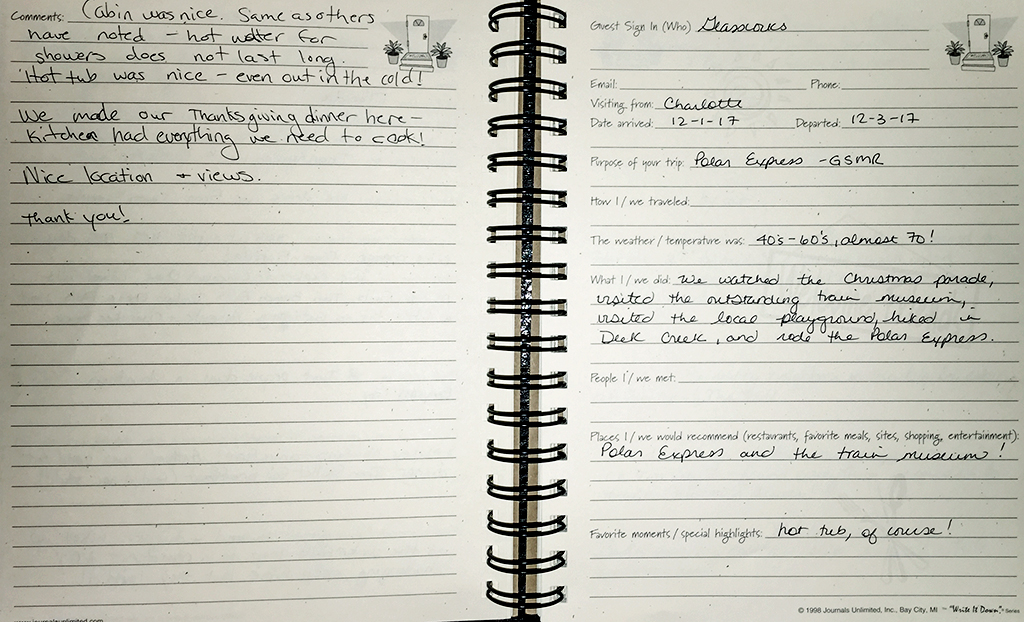 Comments: Cabin was nice. Same as others
have noted - hot water for
showers does not last long.
Hot tub was nice - even out in the cold!
We made our Thanksgiving dinner here -
Kitchen had everything we need to cook!
Nice location + views.
Thank you!
www.journalsunlimited.com
Guest Sign In (Who)
Email: Phone:
Visiting from: Charlotte
Date arrived: 12-1-17 Departed: 12-3-17
Purpose of your trip: Polar Express - GSMR
How I / we traveled:
The weather / temperature was: 40's - 60's, almost 70!
What I / we did: We watched the Christmas parade,
visited the outstanding train museum,
visited the local playground, hiked in
Deek Creek, and rode the Polar Express.
People I / we met:
Places I / we would recommend (restaurants, favorite meals, sites, shopping, entertainment):
Polar Express and the train museum!
Favorite moments / special highlights: hot tub, of course!
© 1998 Journals Unlimited, Inc., Bay City, MI ~ "Write It Down" Series